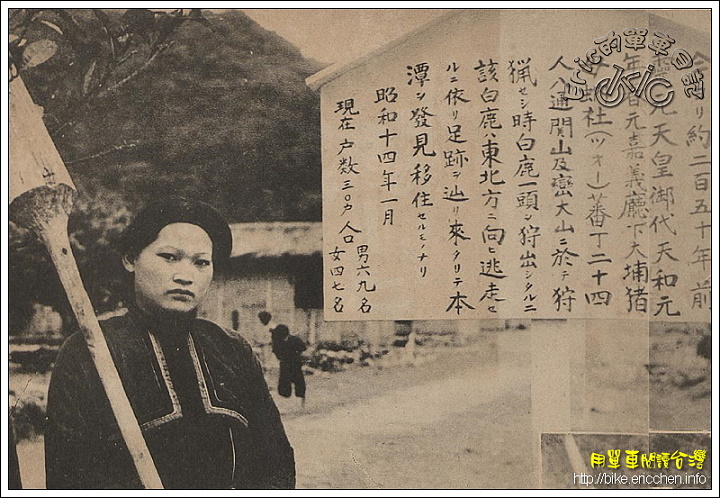 Eric的單車日記
リ約二百五十年前
元天皇御代天和元
年 元嘉義廳下大埔猪
社(ツオー)蕃丁二十四
人八通関山及巒大山ニ於テ狩
猟セシ時白鹿一頭ヲ狩出シタルニ
該白鹿ハ東北方ニ向ヒ逃走セ
ルニ依リ足跡ヲ辿リ來タリテ本
潭ヲ發見移住セルモノナリ
昭和十四年一月
現在 戸数三〇戸 人口 男六九名
女四七名
用單車閱讀台灣
http://bike.ericchen.info